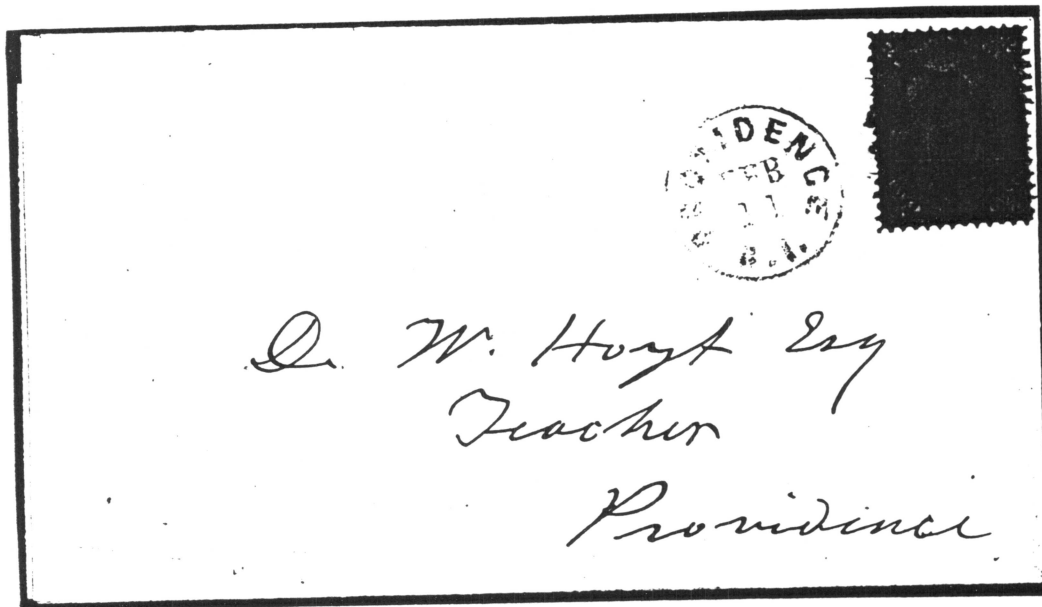 PROVIDENCE
FEB
11
R.I.
D. W. Hoyt Esq
Teacher
Providence